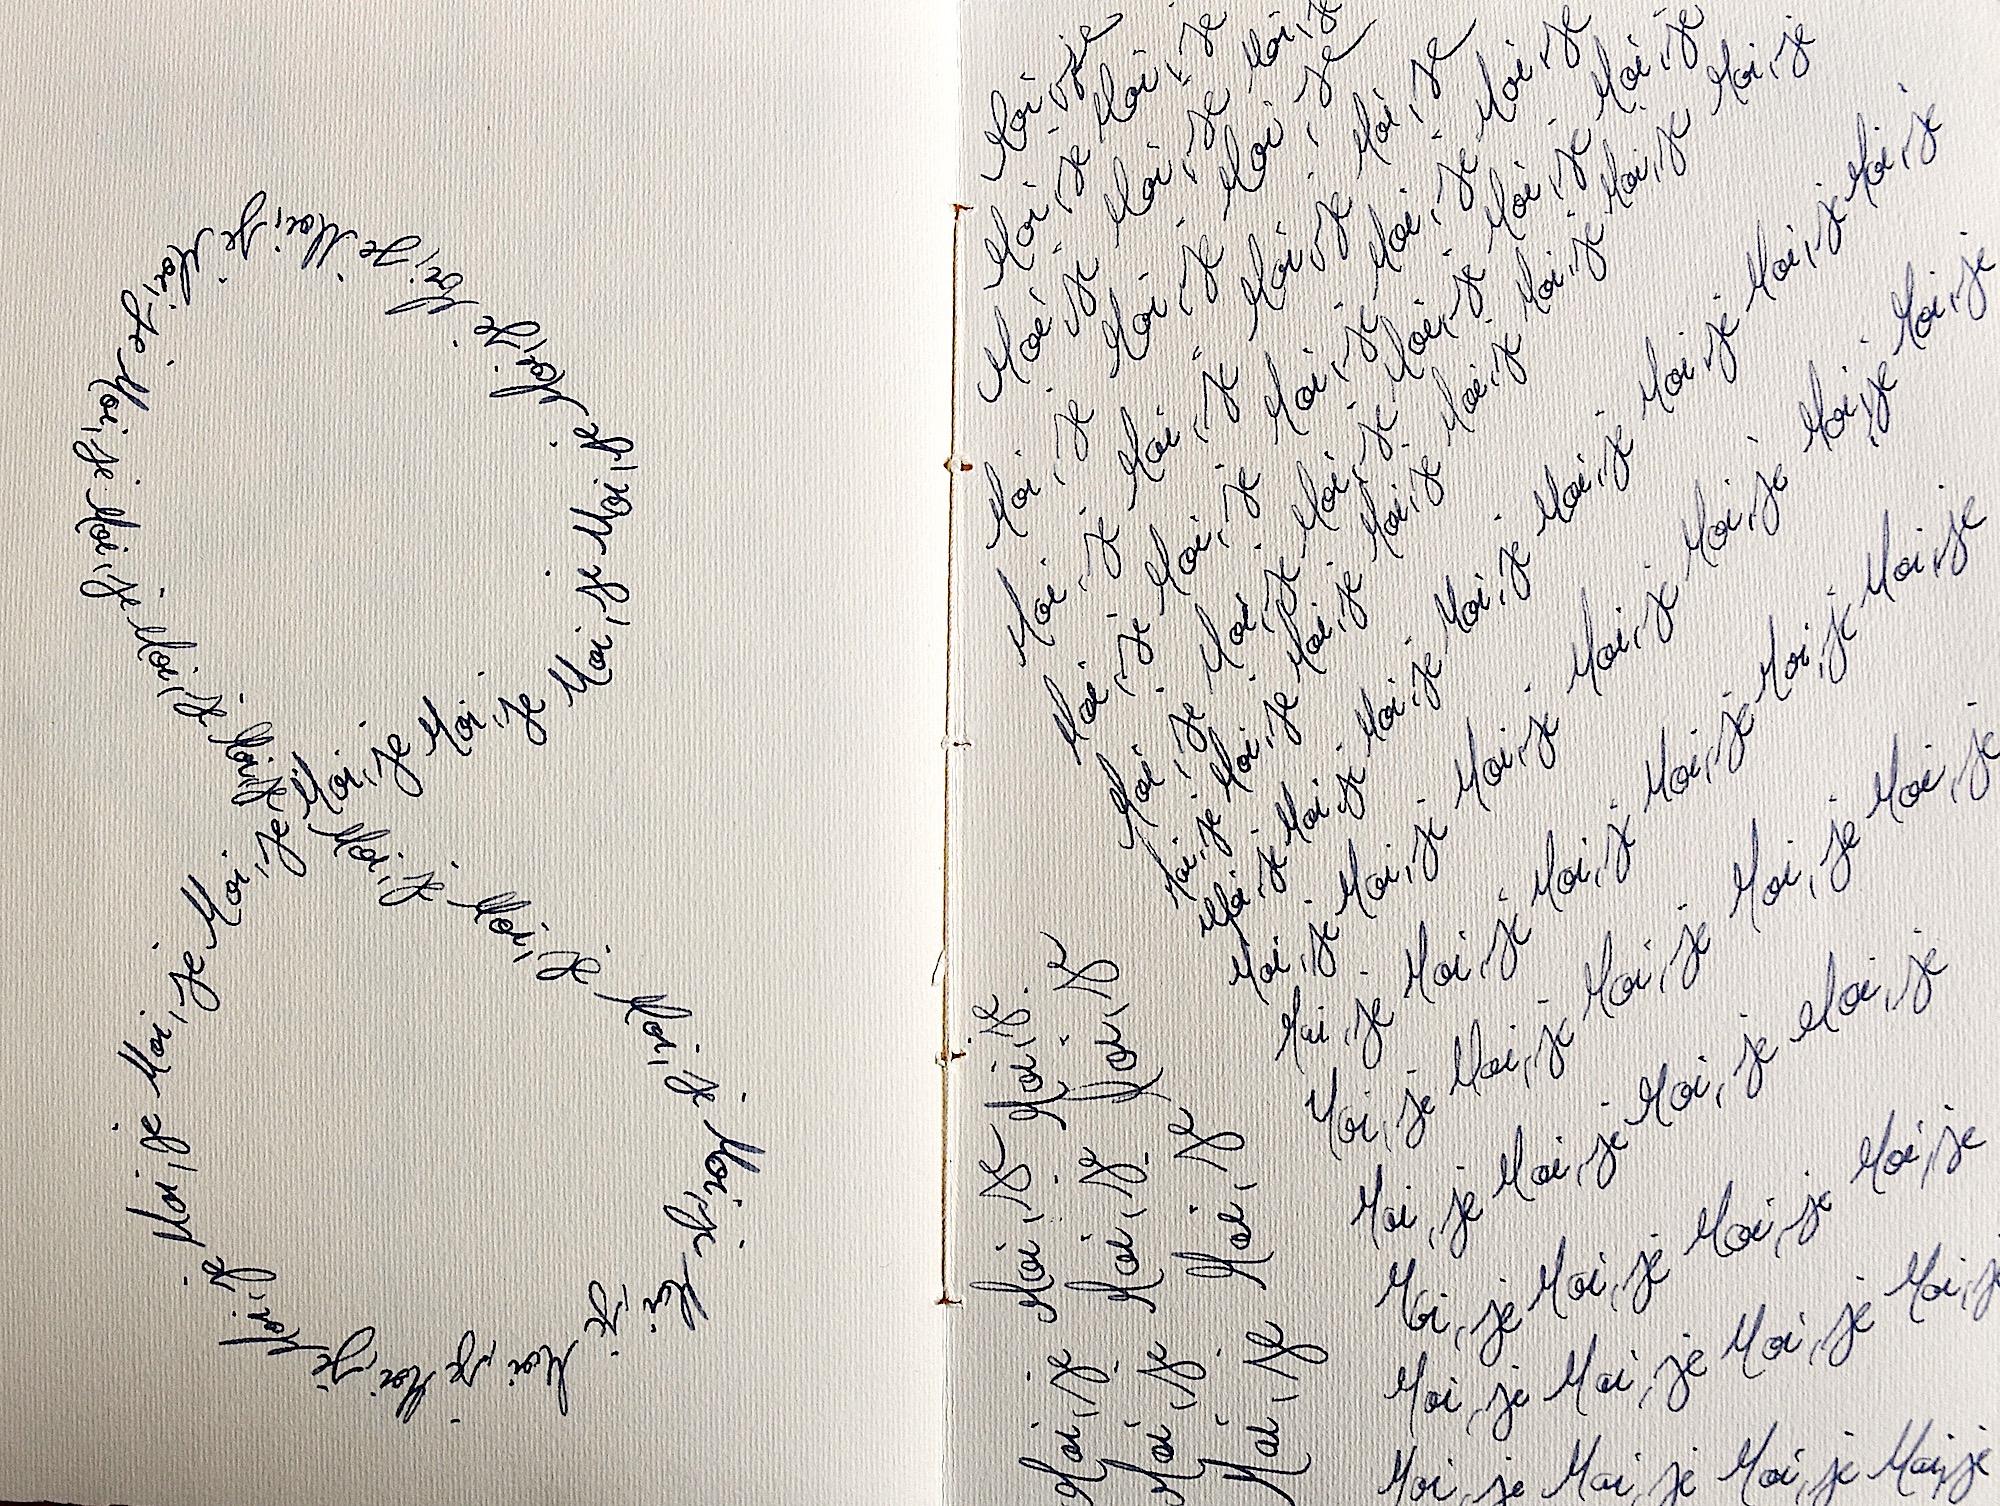 Moi, je Moi, je Moi, je Moi, je Moi, je Moi, je Moi, je Moi, je Moi, je Moi, je Moi, je Moi, je Moi, je Moi, je Moi, je Moi, je Moi, je Moi, je Moi, je Moi, je Moi, je Moi, je Moi, je Moi, je Moi, je Moi, je
Moi, je
Moi, je Moi, je
Moi, je Moi, je Moi, je
Moi, je Moi, je Moi, je
Moi, je Moi, je Moi, je Moi, je
Moi, je Moi, je Moi, je Moi, je Moi, je
Moi, je Moi, je Moi, je Moi, je Moi, je Moi, je
Moi, je Moi, je Moi, je Moi, je Moi, je Moi, je Moi, je Moi, je
Moi, je Moi, je Moi, je Moi, je Moi, je Moi, je Moi, je Moi, je
Moi, je Moi, je Moi, je Moi, je Moi, je Moi, je Moi, je
Moi, je Moi, je Moi, je Moi, je Moi, je Moi, je
Moi, je Moi, je Moi, je Moi, je Moi, je
Moi, je Moi, je Moi, je Moi, je
Moi, je Moi, je Moi, je Moi, je
Moi, je Moi, je Moi, je Moi, je
Moi, je Moi, je Moi, je Moi, je
Moi, je Moi, je Moi, je
Moi, je Moi, je Moi, je
Moi, je Moi, je